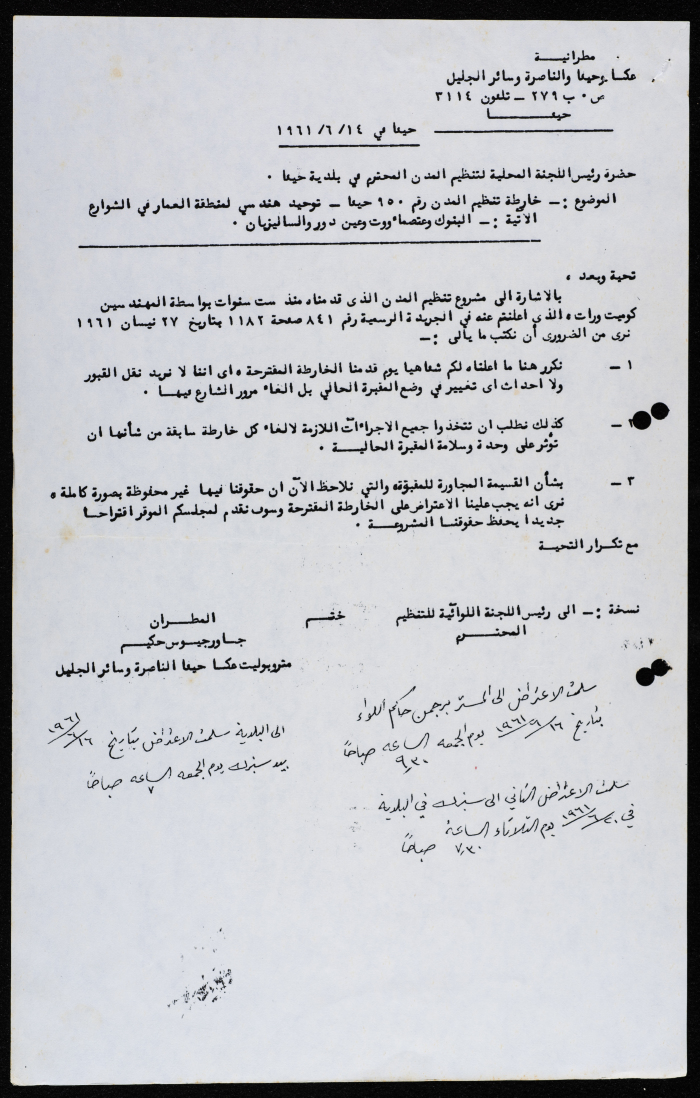 مطرانيـــة
عكـا وحيفا والناصرة وسائر الجليل
ص٠ ب ٢٧٩ ــ تلفون ٣١١٤
حيفـــــا
حيفا في ١٤ /٦ /١٩٦١
حضرة رئيس اللجنة المحلية لتنظيم المدن المحترم في بلدية حيفا ٠
الموضوع :ــ خارطة تنظيم المدن رقم ٩٥٠ حيفا ــ توحيد هندسي لمنطقة العمار في الشوارع
الآتية :ــ البنوك وعتصماءووت وعين دور والساليزيان ٠
تحية وبعد ،
بالاشارة الى مشروع تنظيم المدن الذى قدمناه منذ ست سنوات بواسطة المهندسين
كوميت ورات ه الذى اعلنتم عنه في الجريدة الرسمية رقم ٨٤١ صفحة ١١٨٢ بتاريخ ٢٧ نيسان ١٩٦١
نرى من الضرورى أن نكتب ما يألى :ــ
١ ــ نكرر هنا ما اعلناه لكم شفاهيا يوم قدمنا الخارطة المقترحة ه اى اننا لا نريد نقل القبور
ولا احداث اى تغيير في وضع المقبرة الحالي بل الغاء مرور الشارع فيهـا ٠
٢ ــ كذلك نطلب ان تتخذوا جميع الاجراءات اللازمة لالغاء كل خارطة سابقة من شأنها ان
تؤثر على وحدة وسلامة المقبرة الحاليـــة ٠
٣ ــ بشأن القسيمة المجاورة للمقبرة والتي نلاحظ الآن ان حقوقنا فيها غير محفوظة بصورة كاملة ه
نرى انه يجب علينا الاعتراض على الخارطة المقترحة وسوف نقدم لمجلسكم الموقر اقتراحـا
جديدا يحفظ حقوقنـا المشروعـــة ٠
مع تكرار التحيـة
نسخة :ــ الى رئيس اللجنة اللوائية للتنظيم
المحتـــرم
ختـــم
المطـــران
جـاورجيـوس حكيـم
متروبوليت عكـا حيفا الناصرة وسائر الجليل
سلمت الاعتراض الى المستر برجمن حاكم اللواء
بتاريخ ١٦/ ٦/ ١٩٦١ يوم الجمعه الساعه ٩٫٣٠ صباحًا
سلمت الاعتراض الثاني الى سبنرك في البلدية
في ٢٠/ ٦/ ١٩٦١ يوم الثلاثاء الساعة ٧٫٣٠ صباحًا
الى البلدية سلمت الاعتراض بتاريخ ١٦/ ٦/ ١٩٦١
بيد سبنرك يوم الجمعه الساعه ٧ صباحًا